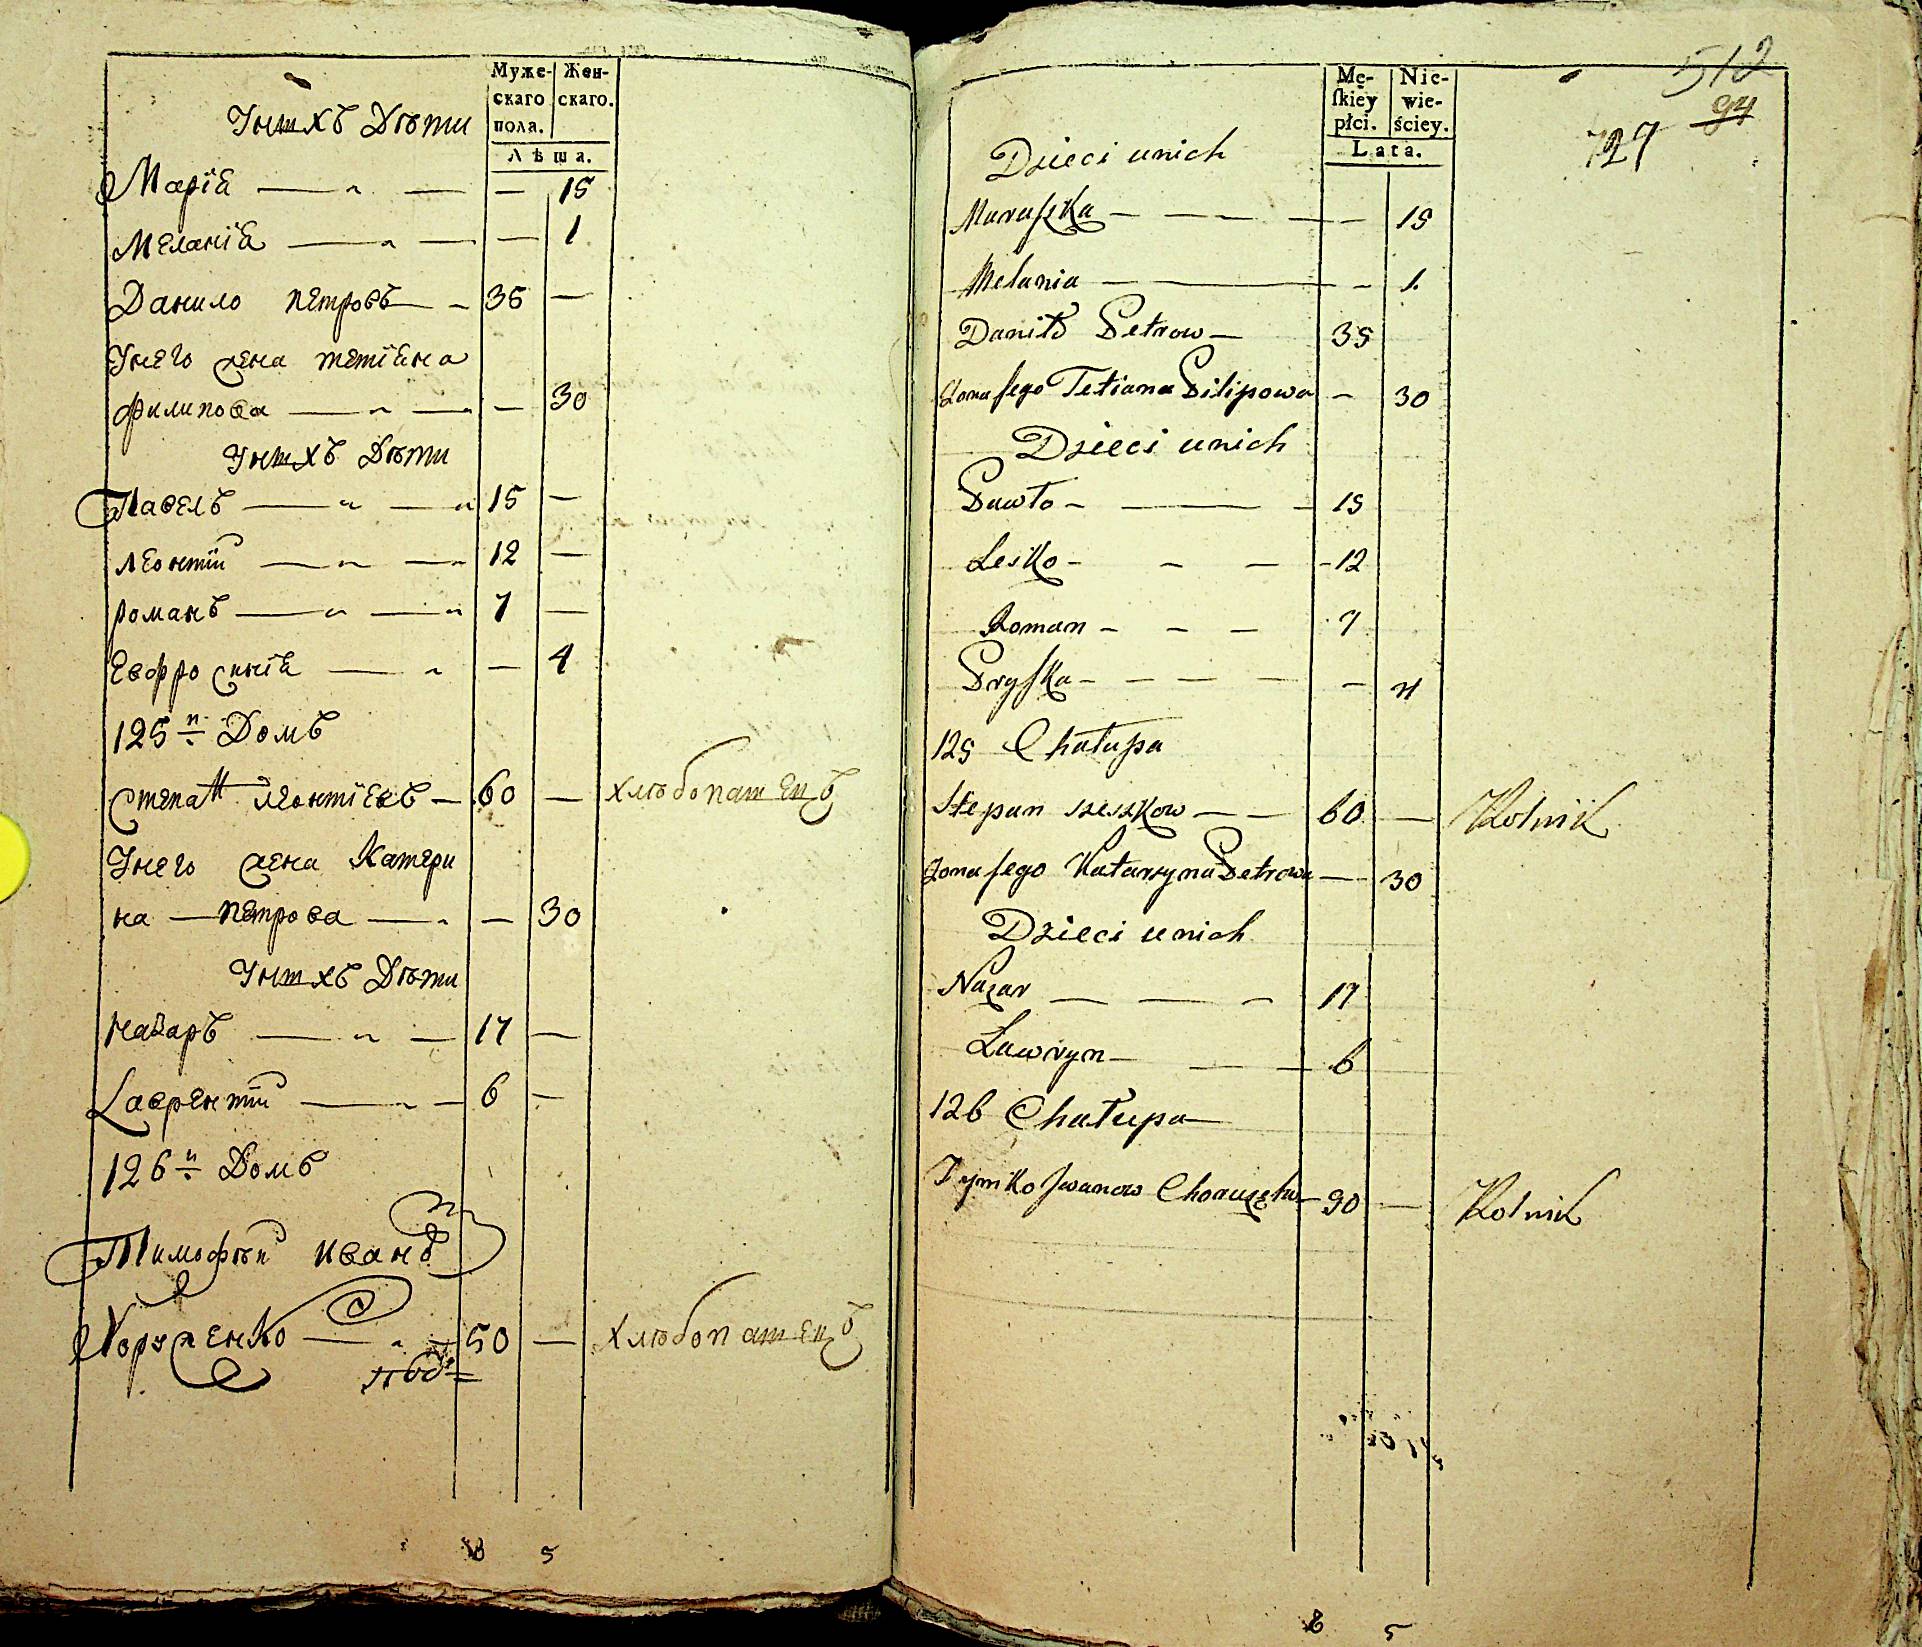 Муже-
скаго
пола.
Жен-
скаго.
Лѣта.
У нихъ Дѣти
Марія — — — 15
Меланія — — — 1
Данило Петровъ — 35 —
У него жена Тетіяна
Филипова — — — 30
У нихъ Дѣти
Павелъ — — 15 —
Леонтій — — 12 —
Романъ — — 7 —
Евфросинія — — 4
125й Домъ
Степанъ Леонтіевъ — 60 — хлѣбопашецъ
У него жена Катери
на — Петрова — — 30
У нихъ Дѣти
Назаръ — — 17 —
Лаврентій — — 6 —
126й Домъ
Тимофѣй Ивановъ
Хоруженко — 50 — Хлѣбопашецъ
8 5
Mę-
ſkiéy
płci.
Nie-
wie-
ściey.
Lata.
512
94
727
Dzieci unich
Maruſzka — — — — 15
Melania — — — 1.
Daniło Petrow — 35
Zona ſego Tetiana Pilipowa — 30
Dzieci unich
Pawło — — — 15
Lesko — — — 12
Roman — — — 7
Pryſka — — — — 4
125 Chałupa
Stepan Leszkow — — 60 — Rolnik
Zona ſego Katarzyna Petrowa — 30
Dzieci unich
Nazar — — — 17
Lawryn — — — 6
126 Chałupa
Tymko Jwanow — 50 — Rolnik
8 5